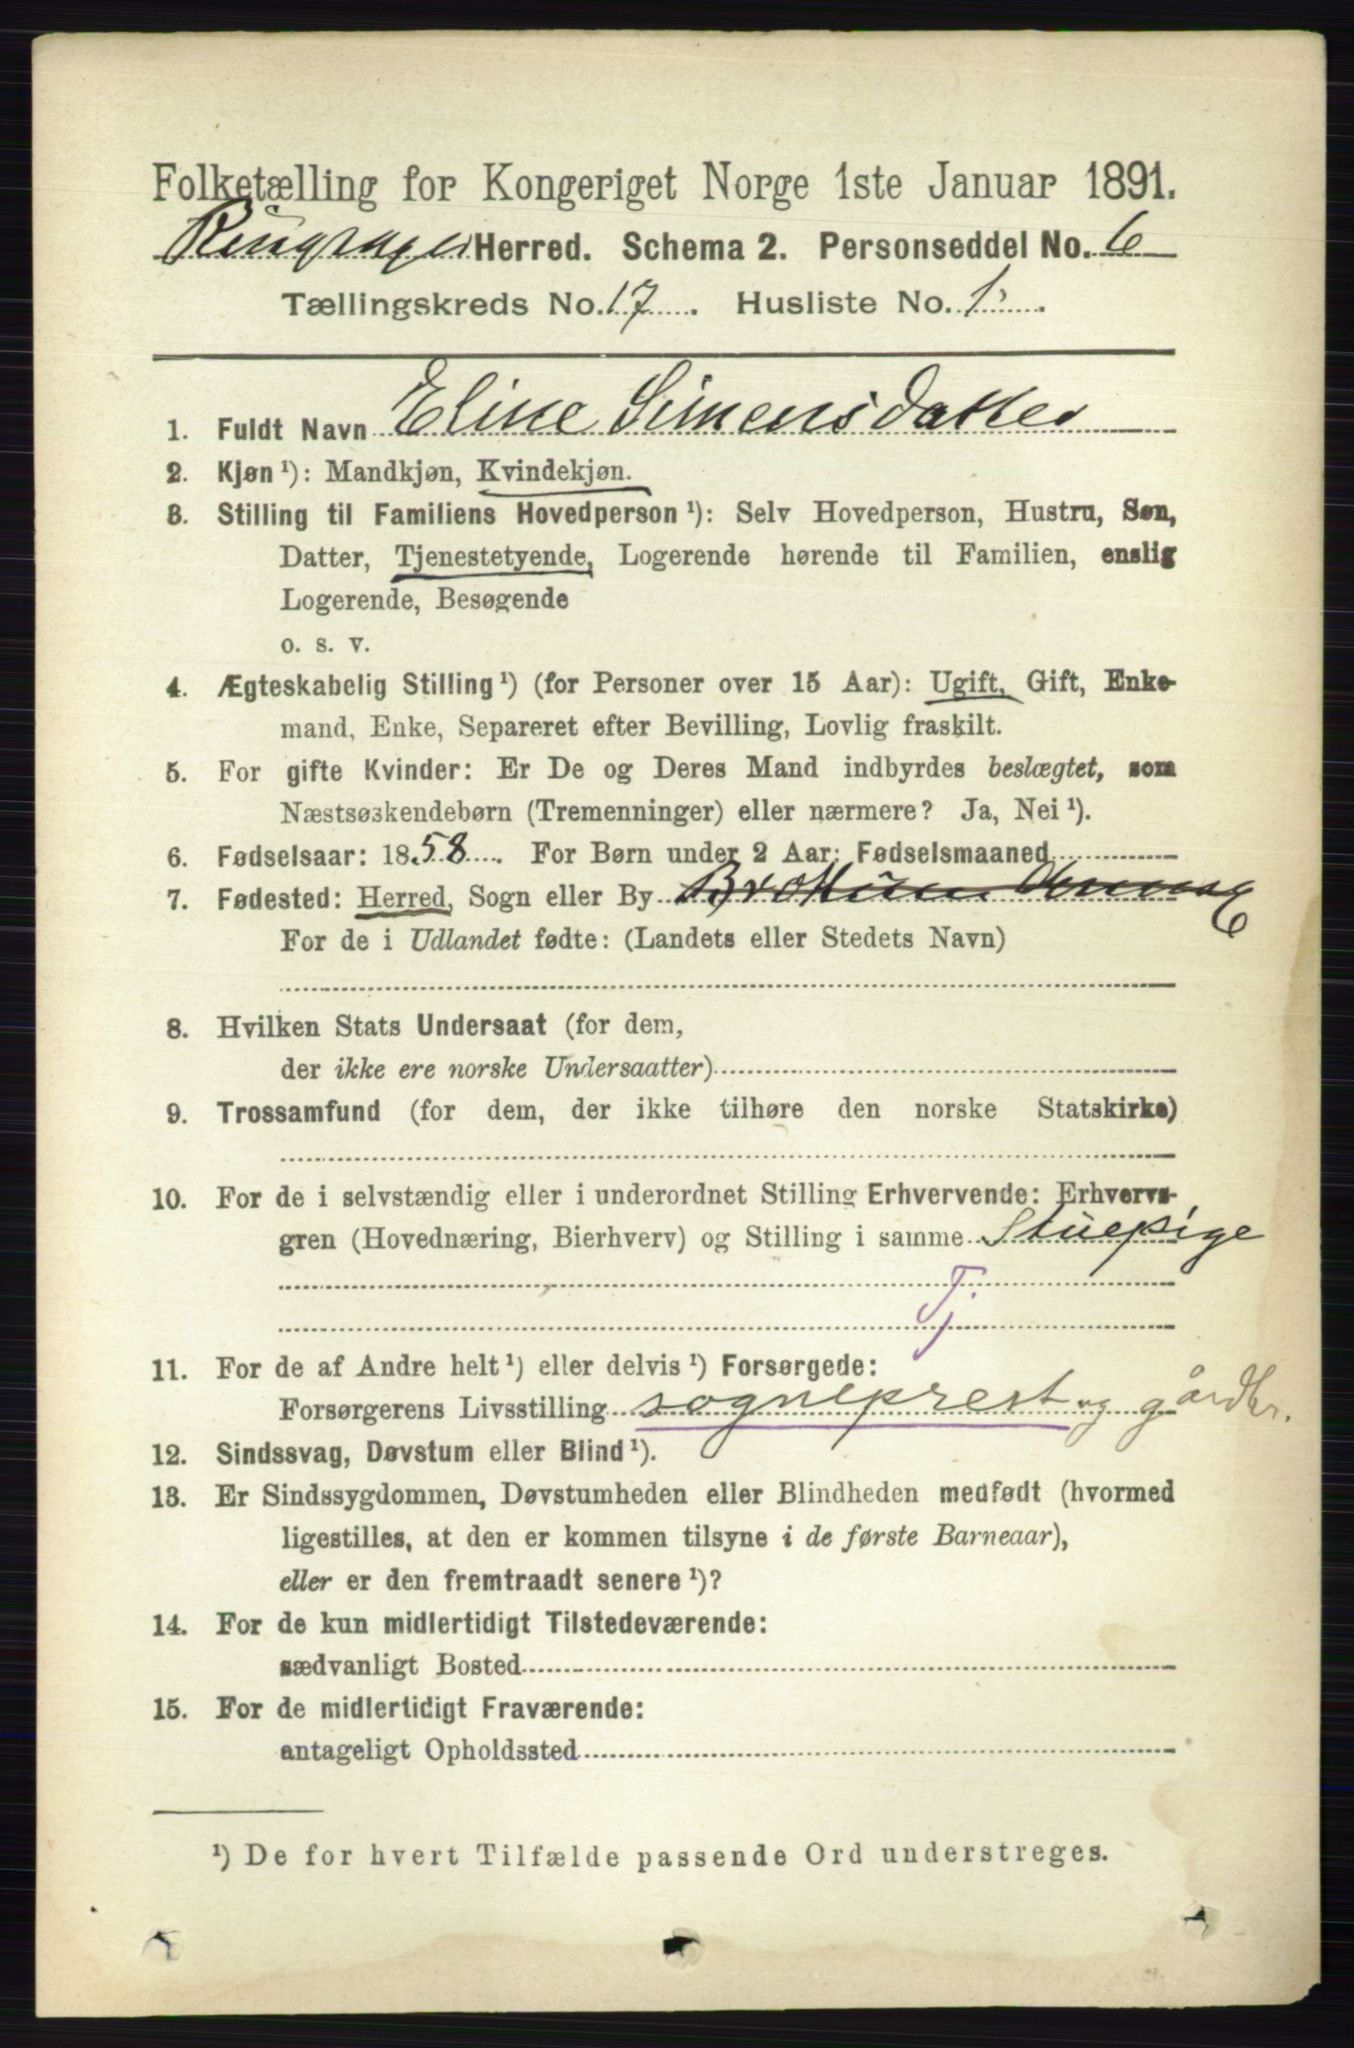 Folketælling for Kongeriget Norge 1ste Januar 1891.
Ringsager Herred. Schema 2. Personseddel No. 6
Tællingskreds No. 17. Husliste No. 1.
1. Fuldt Navn Eline Simensdatter
2. Kjøn ¹): Mandkjøn, Kvindekjøn.
3. Stilling til Familiens Hovedperson ¹): Selv Hovedperson, Hustru, Søn,
Datter, Tjenestetyende, Logerende hørende til Familien, enslig
Logerende, Besøgende
o. s. v.
4. Ægteskabelig Stilling ¹) (for Personer over 15 Aar): Ugift, Gift, Enke-
mand, Enke, Separeret efter Bevilling, Lovlig fraskilt.
5. For gifte Kvinder: Er De og Deres Mand indbyrdes beslægtet, som
Næstsøskendebørn (Tremenninger) eller nærmere? Ja, Nei ¹).
6. Fødselsaar: 1858. For Børn under 2 Aar: Fødselsmaaned
7. Fødested: Herred, Sogn eller By Brøttum
For de i Udlandet fødte: (Landets eller Stedets Navn)
8. Hvilken Stats Undersaat (for dem,
der ikke ere norske Undersaatter)
9. Trossamfund (for dem, der ikke tilhøre den norske Statskirke)
10. For de i selvstændig eller i underordnet Stilling Erhvervende: Erhvervs-
gren (Hovednæring, Bierhverv) og Stilling i samme Stuepige
Tj.
11. For de af Andre helt ¹) eller delvis ¹) Forsørgede:
Forsørgerens Livsstilling sogneprest og gårdbr.
12. Sindssvag, Døvstum eller Blind ¹).
13. Er Sindssygdommen, Døvstumheden eller Blindheden medfødt (hvormed
ligestilles, at den er kommen tilsyne i de første Barneaar),
eller er den fremtraadt senere ¹)?
14. For de kun midlertidigt Tilstedeværende:
sædvanligt Bosted
15. For de midlertidigt Fraværende:
antageligt Opholdssted
¹) De for hvert Tilfælde passende Ord understreges.